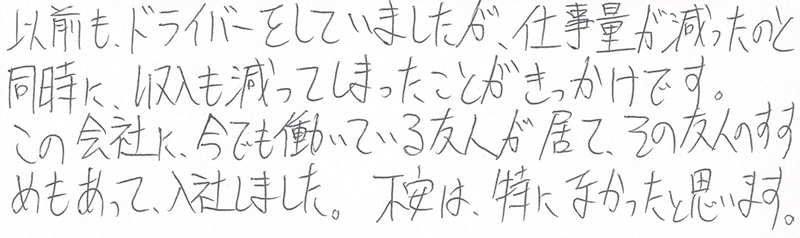 以前も、ドライバーをしていましたが、仕事量が減ったのと
同時に、収入も減ってしまったことがきっかけです。
この会社に、今でも働いている友人が居て、その友人のすす
めもあって、入社しました。 不安は、特になかったと思います。